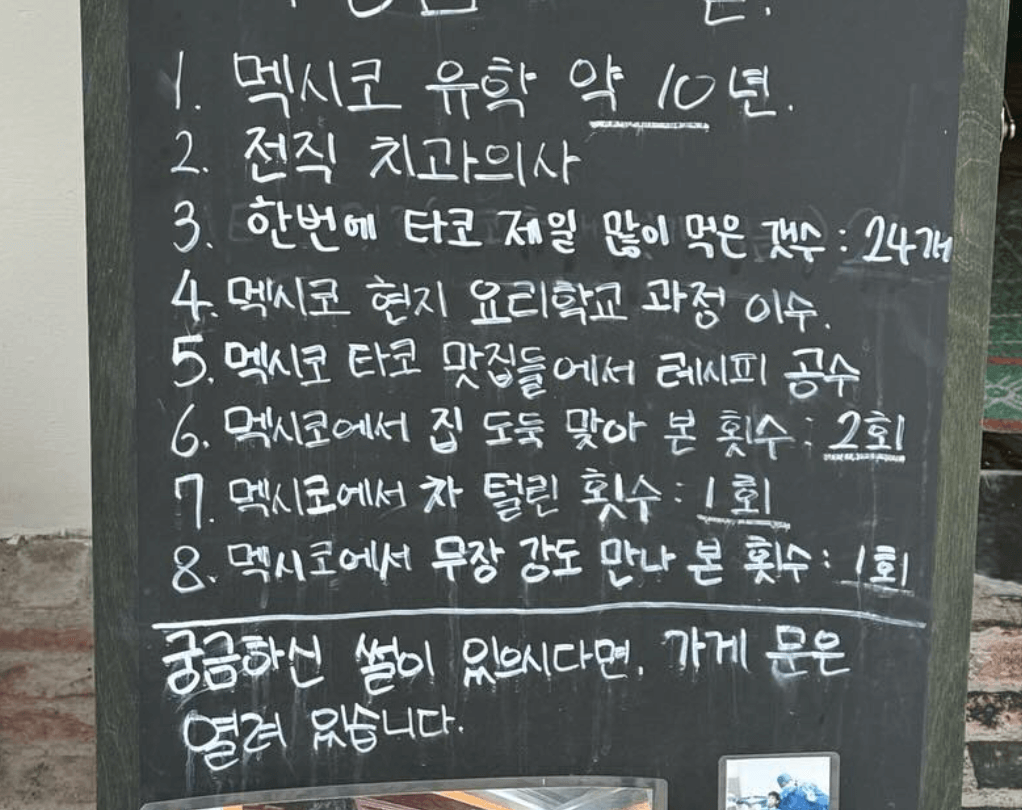 1. 멕시코 유학 약 10년.
2. 전직 치과의사
3. 한번에 타코 제일 많이 먹은 갯수 : 24개
4. 멕시코 현지 요리학교 과정 이수.
5. 멕시코 타코 맛집들에서 레시피 공수
6. 멕시코에서 집 도둑 맞아 본 횟수 : 2회
7. 멕시코에서 차 털린 횟수 : 1회
8. 멕시코에서 무장 강도 만나 본 횟수 : 1회
궁금하신 썰이 있으시다면, 가게 문은
열려 있습니다.